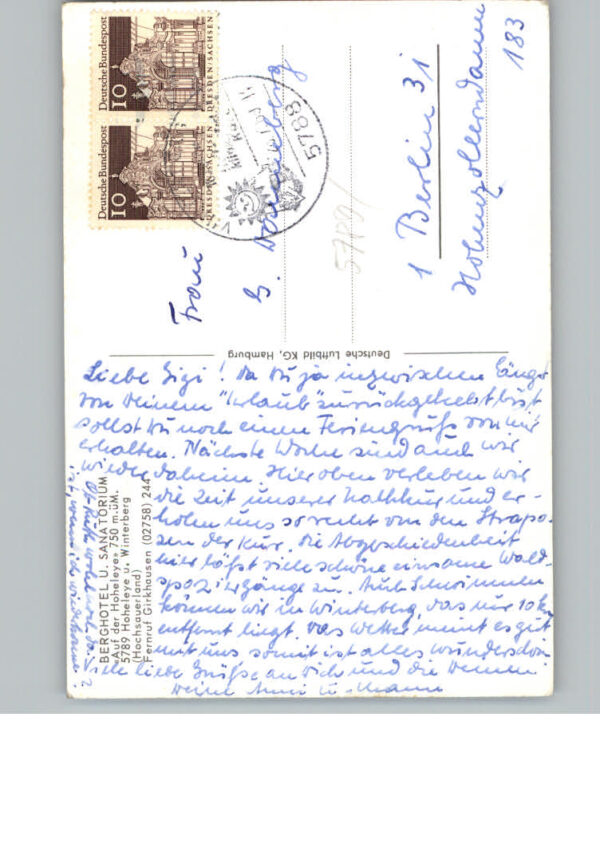 Deutsche Bundespost
10
DRESDEN/SACHSEN
Deutsche Bundespost
10
DRESDEN/SACHSEN
5788
Frau
G.
1 Berlin 31
Hohenzollerndamm
183
5789/
Deutsche Luftbild KG, Hamburg
Liebe Gigi! Da Du ja inzwischen längst
von Deinem "Urlaub" zurückgekehrt bist
sollst Du noch einen Feriengruß von mir
erhalten. Nächste Woche sind auch wir
wieder daheim. Hier oben verleben wir
die Zeit unserer Nachkur und er-
holen uns so recht von den Strapa-
zen der Kur. Die Abgeschiedenheit
hier läßt viele schöne einsame Wald-
spaziergänge zu. Auch Schwimmen
können wir in Winterberg, das nur 10 km
entfernt liegt. Das Wetter meint es gut
mit uns somit ist alles wunderschön
Viele liebe Grüße an Dich und die Deinen
Deine Anni u. Mann
BERGHOTEL U. SANATORIUM
"Auf der Hoheleye" 750 m.ü.M.
5789 Hoheleye ü. Winterberg
(Hochsauerland)
Fernruf Girkhausen (02758) 244